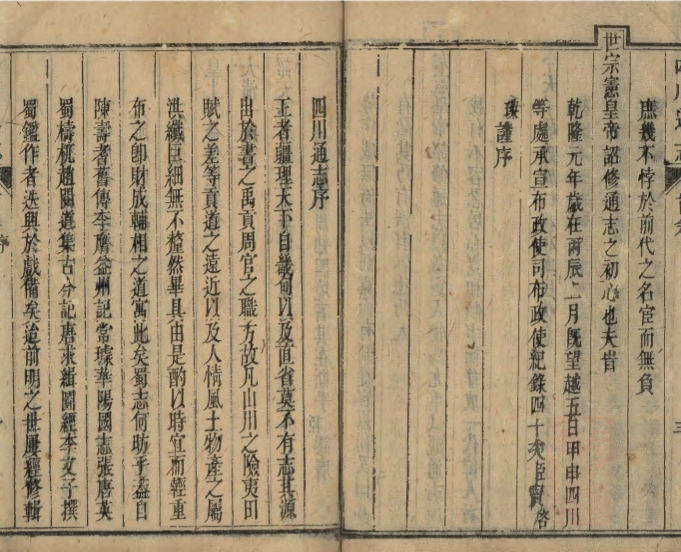 四川通志
庶幾不悖於前代之名宦而無負
世宗憲皇帝詔修通志之初心也夫旹
乾隆元年歲在丙辰二月既望越五日甲申四川
等處承宣布政使司布政使紀錄四十
謹序
四川通志序
王者疆理天下自畿甸以及直省莫不有志其源
出於書之禹貢周官之職方故凡山川之險夷田
賦之差等貢道之遠近以及人情風土物產之屬
洪纖巨細無不釐然畢具由是酌以時宜而輕重
布之卽財成輔相之道寓此矣蜀志何昉乎蓋自
陳壽耆舊傳李膺益州記常璩華陽國志張唐英
蜀檮杌趙閱道集古今記唐求緝圖經李文子撰
蜀鑑作者迭興於戲備矣逮前明之世屢經修輯
序